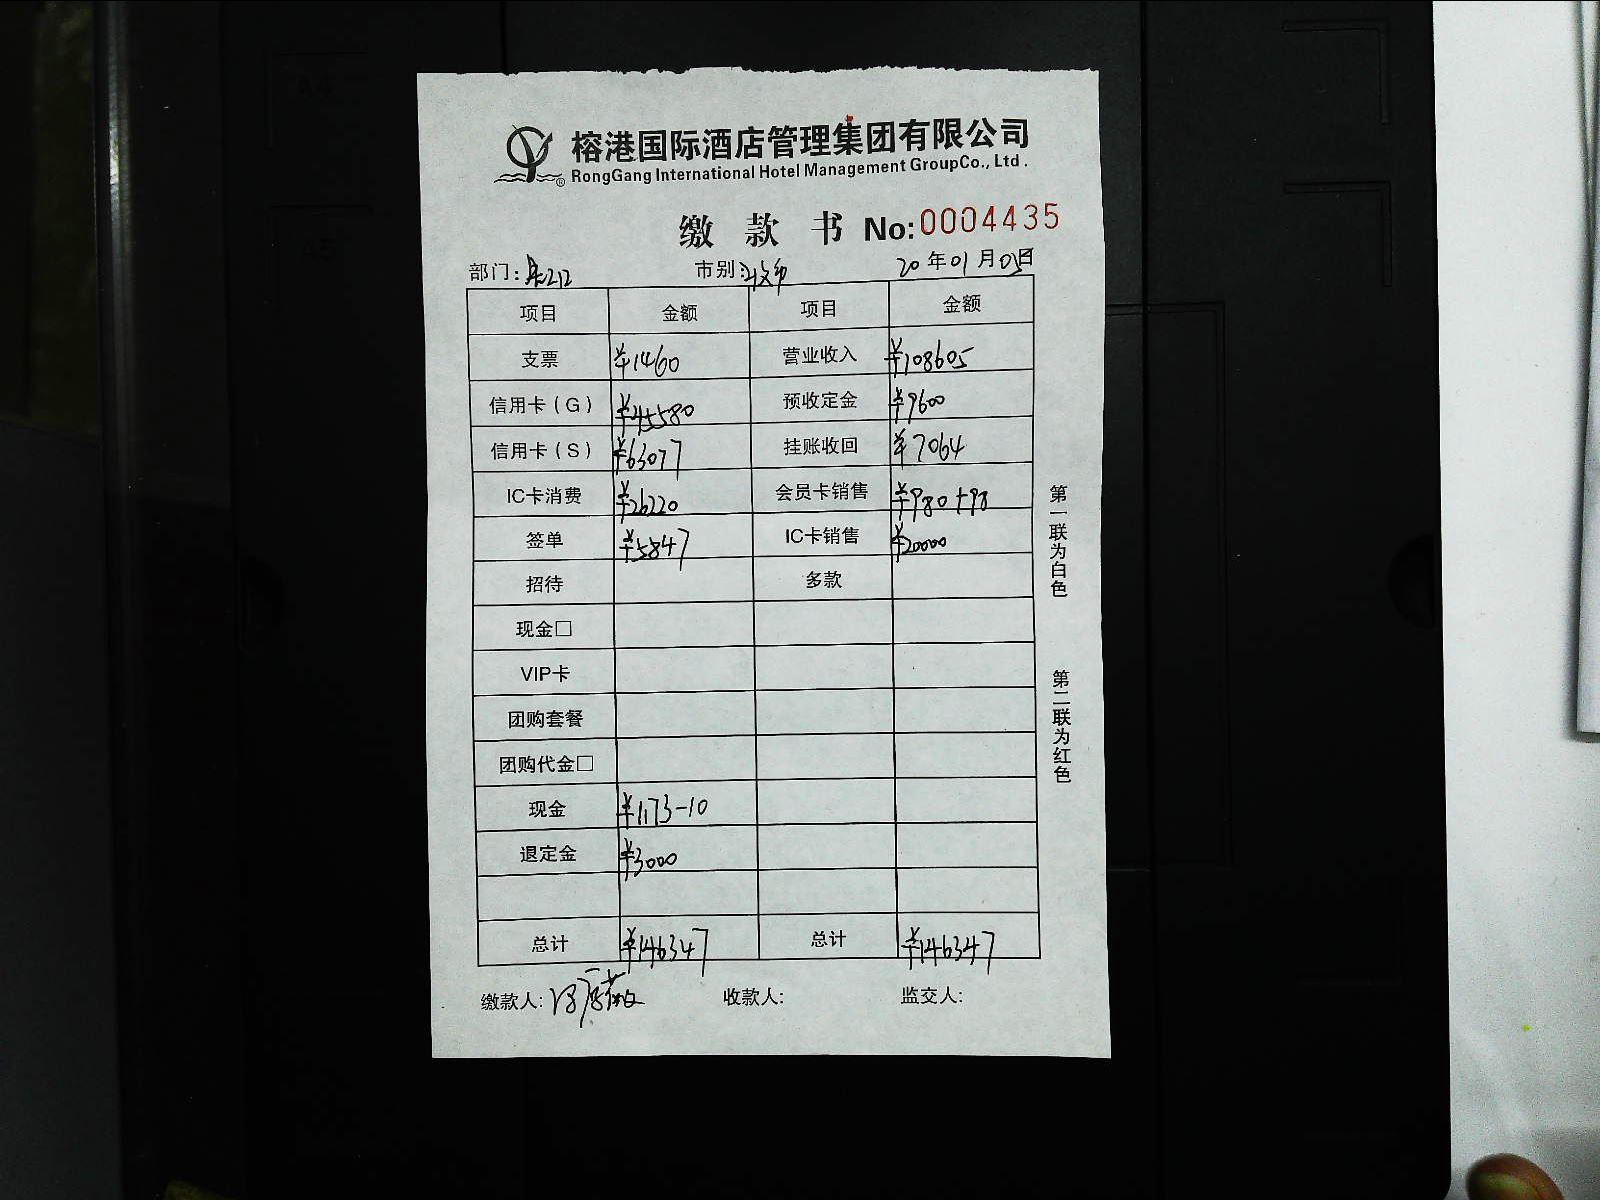 榕港国际酒店管理集团有限公司
RongGang International Hotel Management GroupCo., Ltd .
缴 款 书 No:0004435
部门: 市别: 20 年 01 月 05 日
项目 金额 项目 金额
支票 ¥1460 营业收入 ¥108605
信用卡(G) ¥45580 预收定金 ¥9600
信用卡(S) ¥63077 挂账收回 ¥7064
IC卡消费 ¥26220 会员卡销售 ¥980+98
签单 ¥5847 IC卡销售 ¥20000
招待 多款
现金□
VIP卡
团购套餐
团购代金□
现金 ¥1173-10
退定金 ¥3000
总计 ¥146347 总计 ¥146347
缴款人: 收款人: 监交人:
第一联为白色
第二联为红色